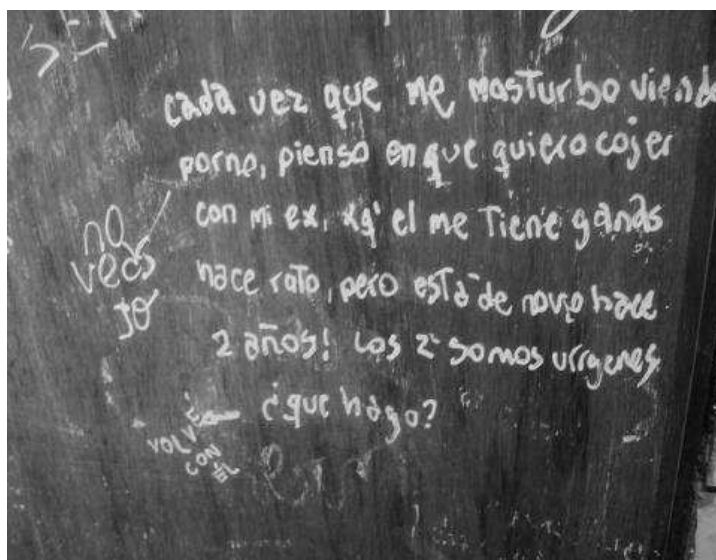 cada vez que me masturbo viendo
porno, pienso en que quiero cojer
con mi ex, xq' el me tiene ganas
hace rato, pero está de novio hace
2 años! Los 2 somos vírgenes
¿que hago?
no
veas
VOLVÉ
CON
ÉL